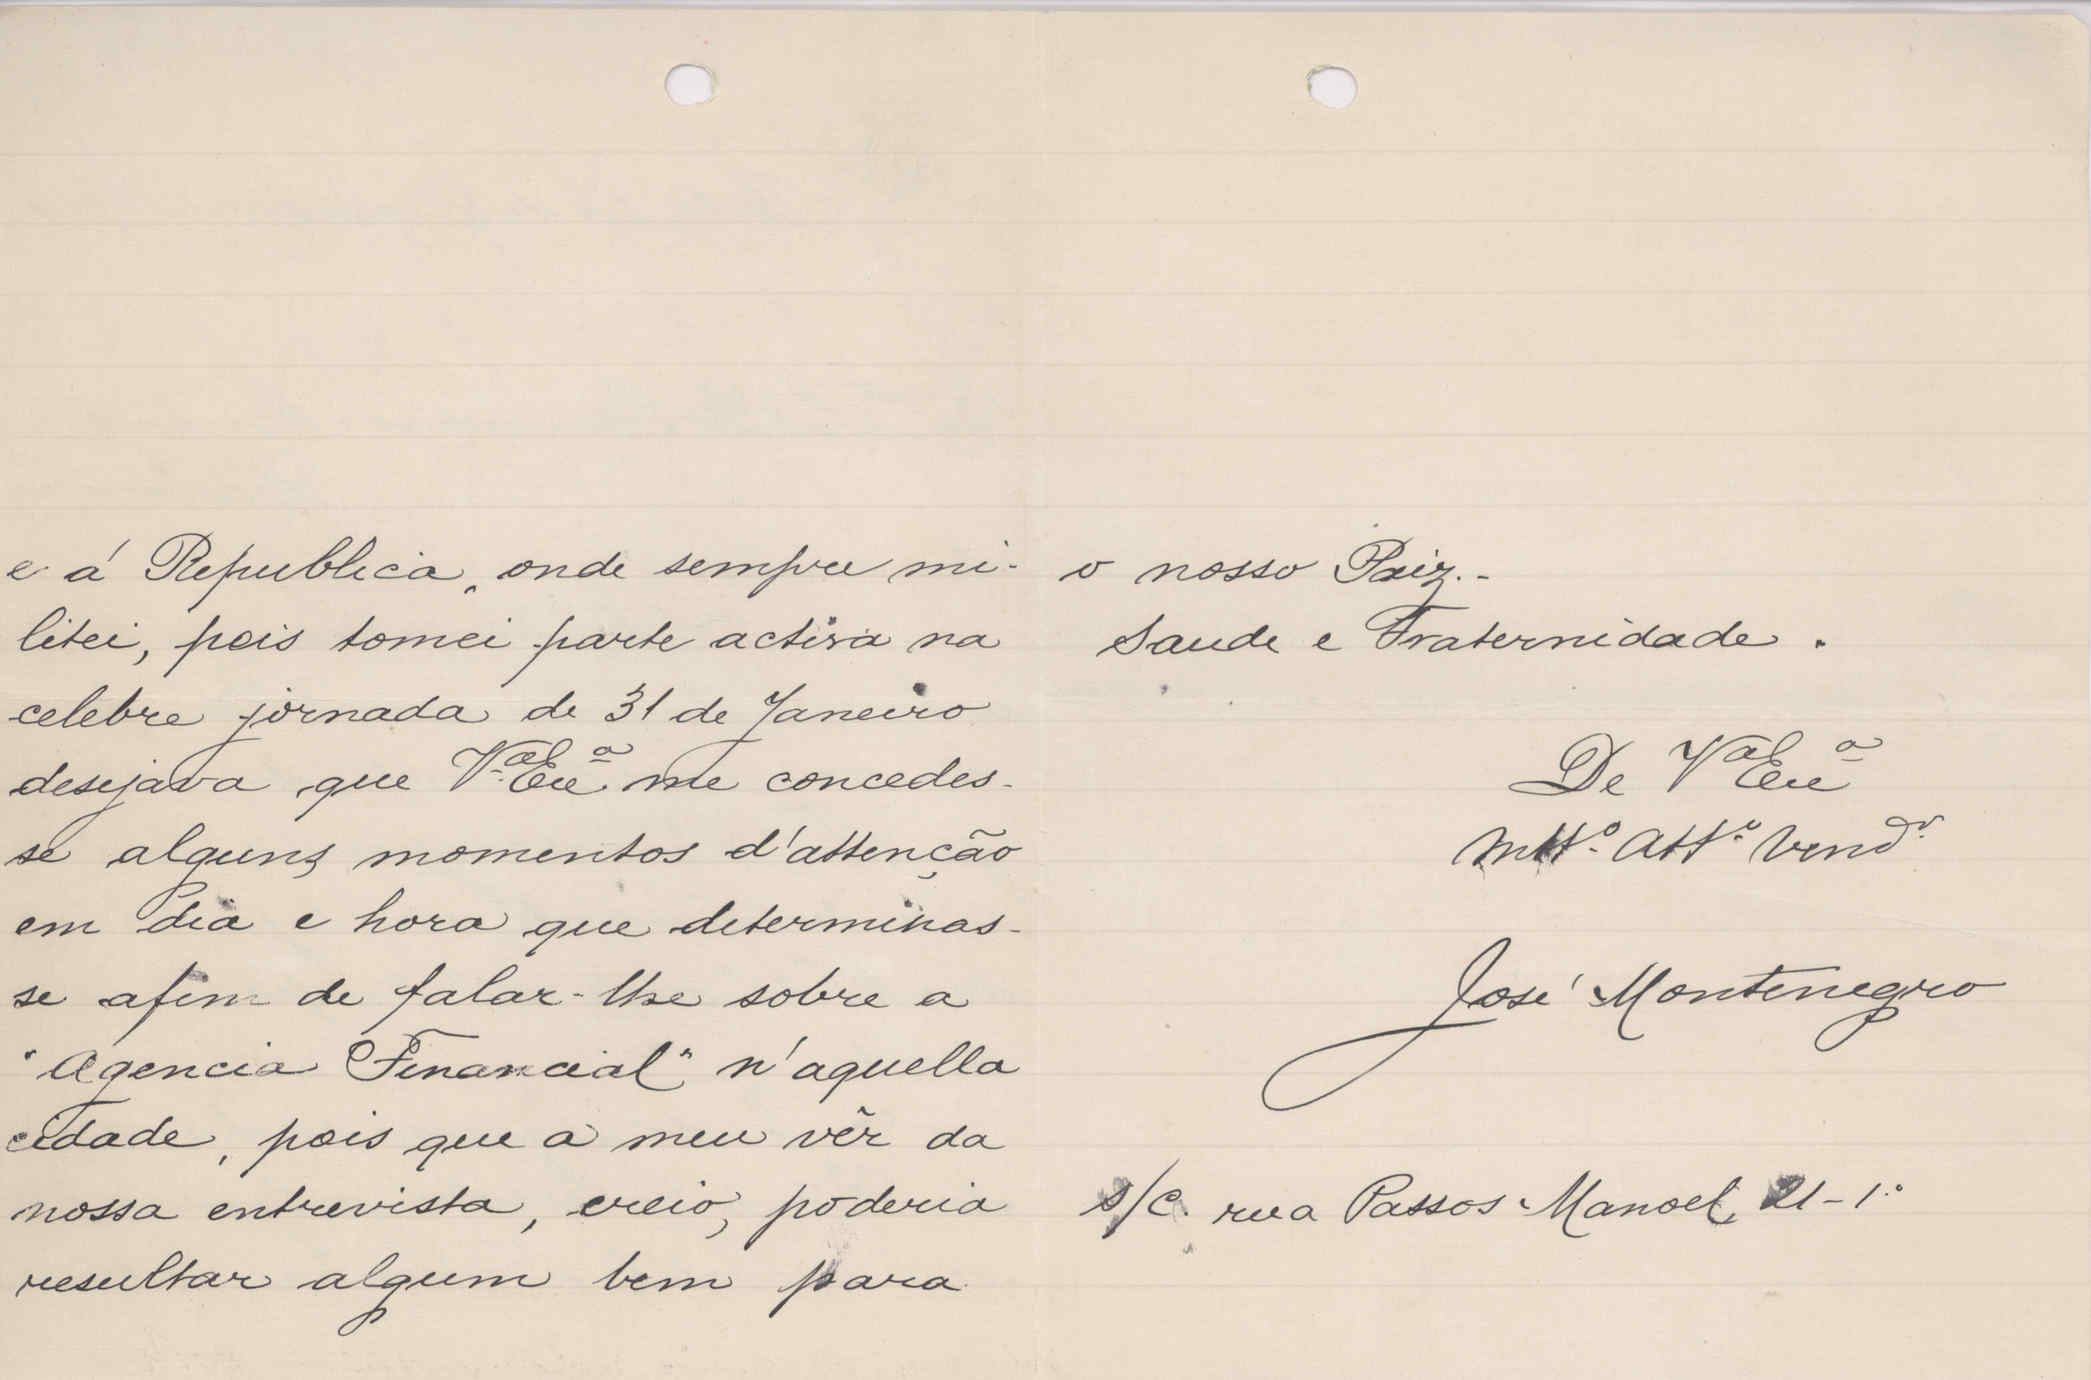 e á Republica, onde sempre mi-
litei, pois tomei parte activa na
celebre jornada de 31 de Janeiro
desejava que V.ª Exª me concedes-
se alguns momentos d'attenção
em dia e hora que determinas-
se afim de falar-lhe sobre a
"Agencia Financial" n'aquella
cidade, pois que a meu vêr da
nossa entrevista, creio, poderia
resultar algum bem para
o nosso Paiz.-
Saude e Fraternidade.
De Vª Exª
Mtt.º Att.º Vend.ʳ
José Montenegro
S/C. rua Passos Manoel, 21-1.º